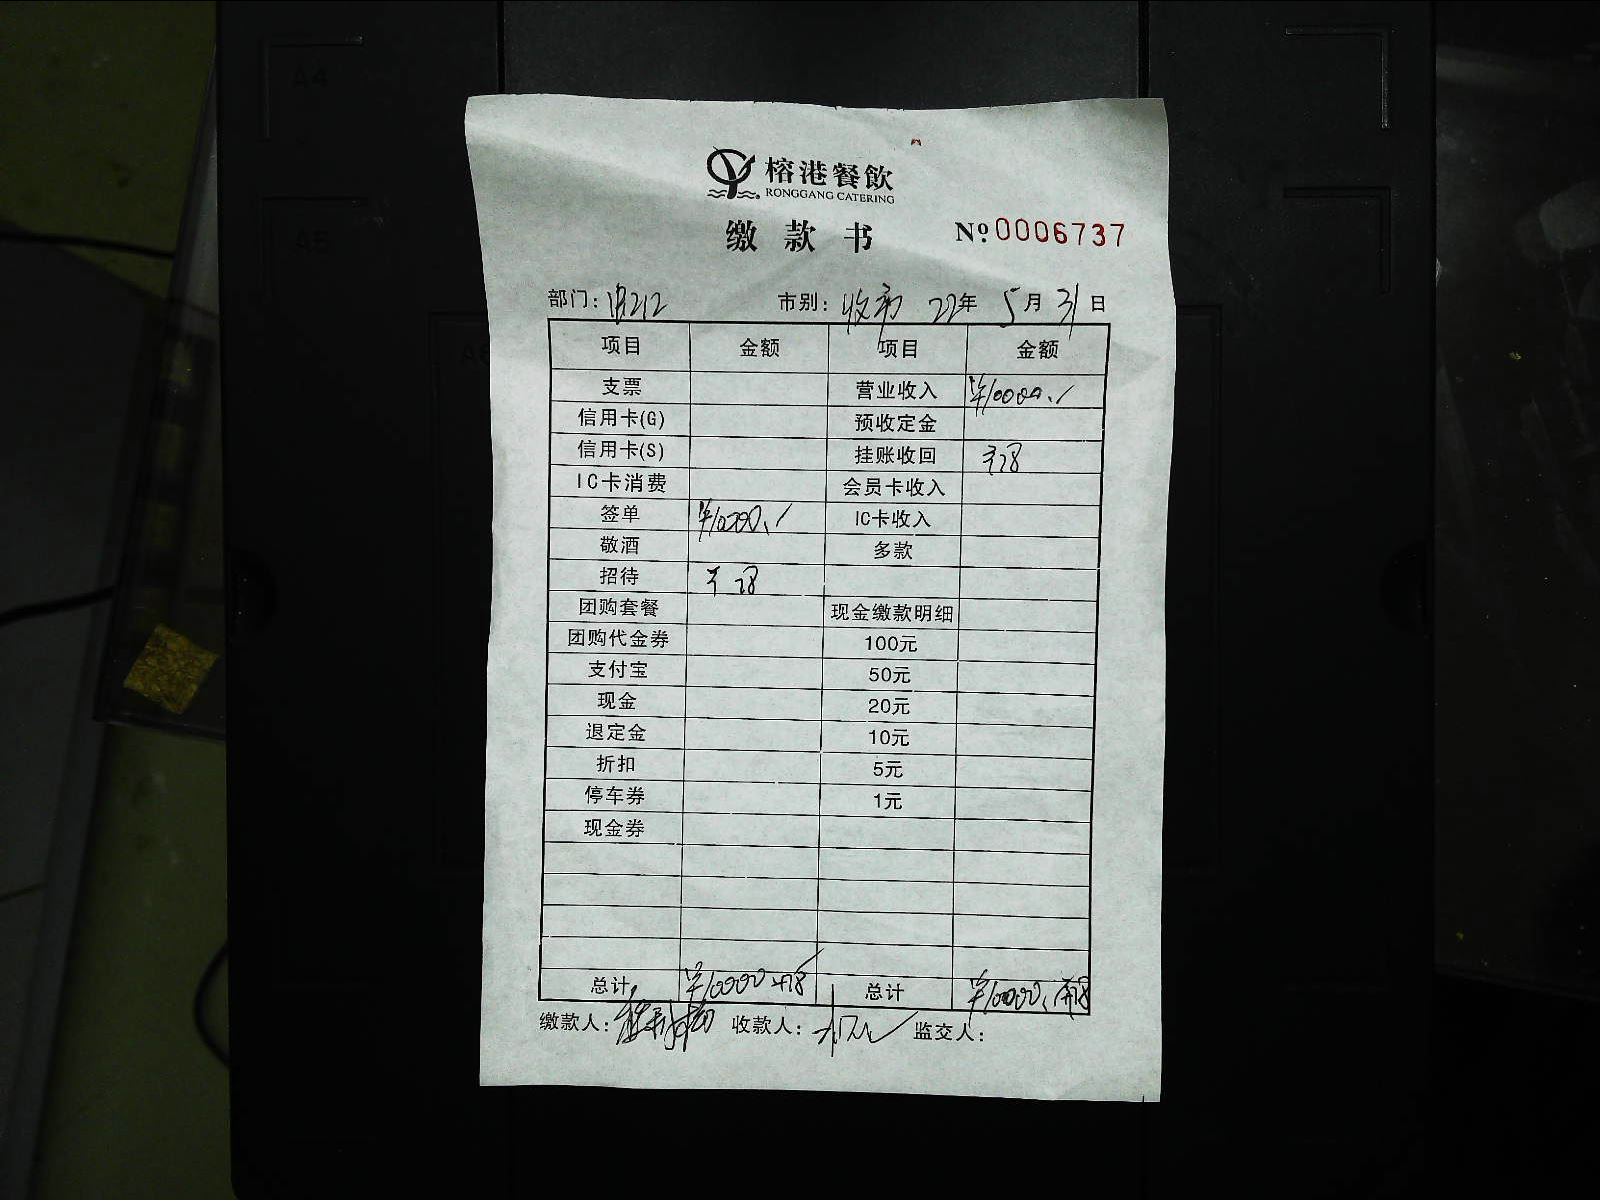 榕港餐飲
RONGGANG CATERING
缴款书 №0006737
部门: 市别: 收市 22年 5月 31日
项目 金额 项目 金额
支票 营业收入 ¥10000.
信用卡(G) 预收定金
信用卡(S) 挂账收回
IC卡消费 会员卡收入
签单 IC卡收入
敬酒 多款
招待
团购套餐 现金缴款明细
团购代金券 100元
支付宝 50元
现金 20元
退定金 10元
折扣 5元
停车券 1元
现金券
总计 总计
缴款人: 收款人: 监交人:
A4
A5